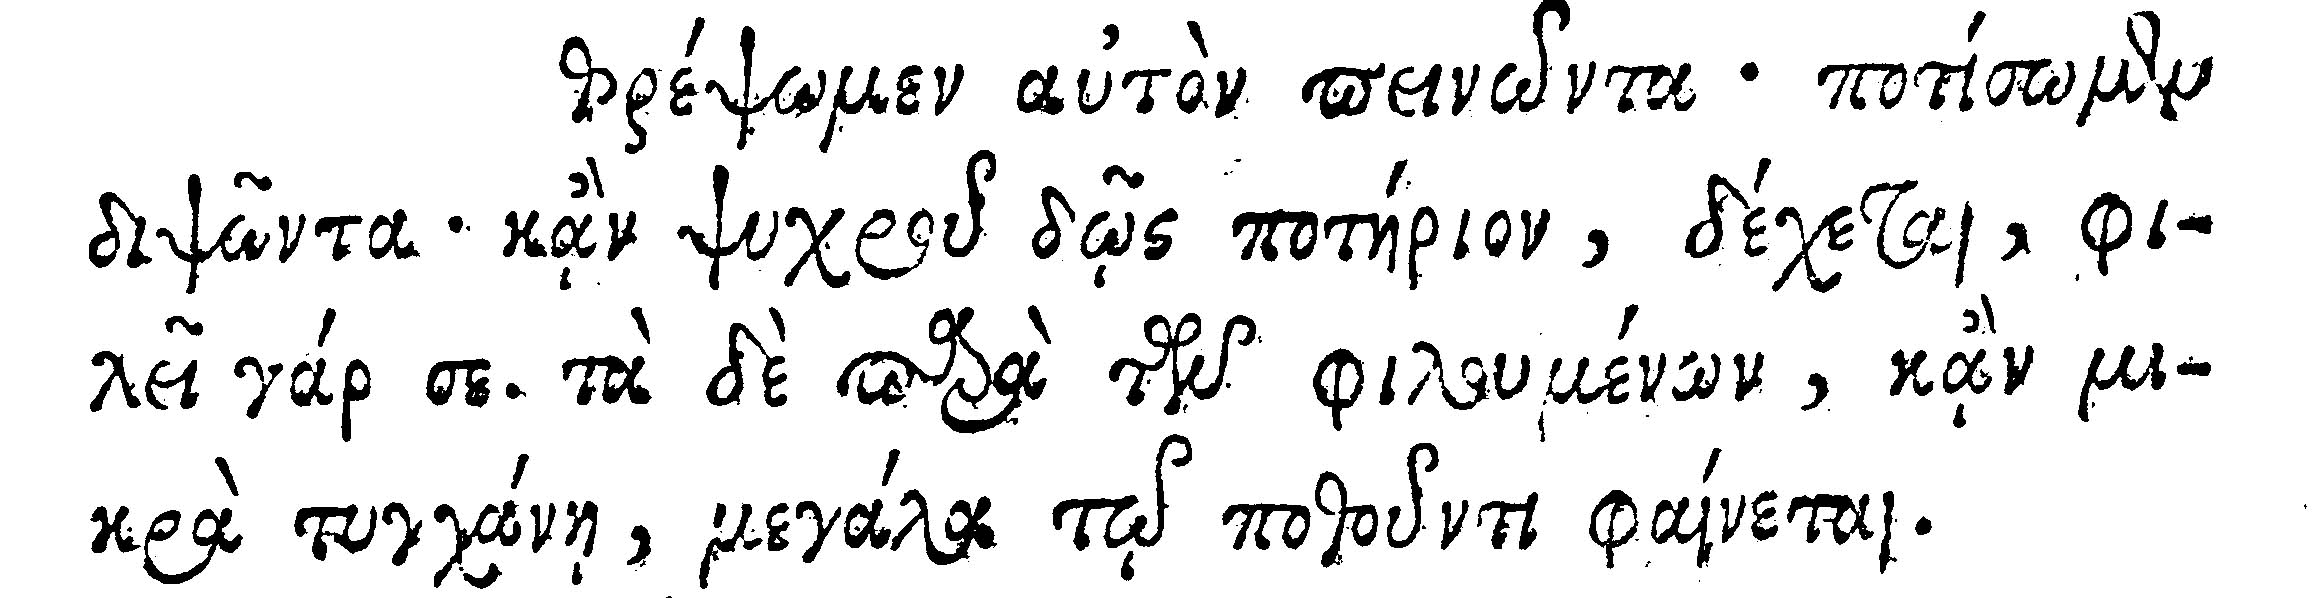 θρέψωμεν αὐτὸν πεινῶντα· ποτίσωμεν
διψῶντα· κᾂν ψυχροῦ δῷς ποτήριον, δέχεται, φι-
λεῖ γάρ σε. τὰ δὲ παρὰ τῶν φιλουμένων, κᾂν μι-
κρὰ τυγχάνῃ, μεγάλα τῷ ποθοῦντι φαίνεται.